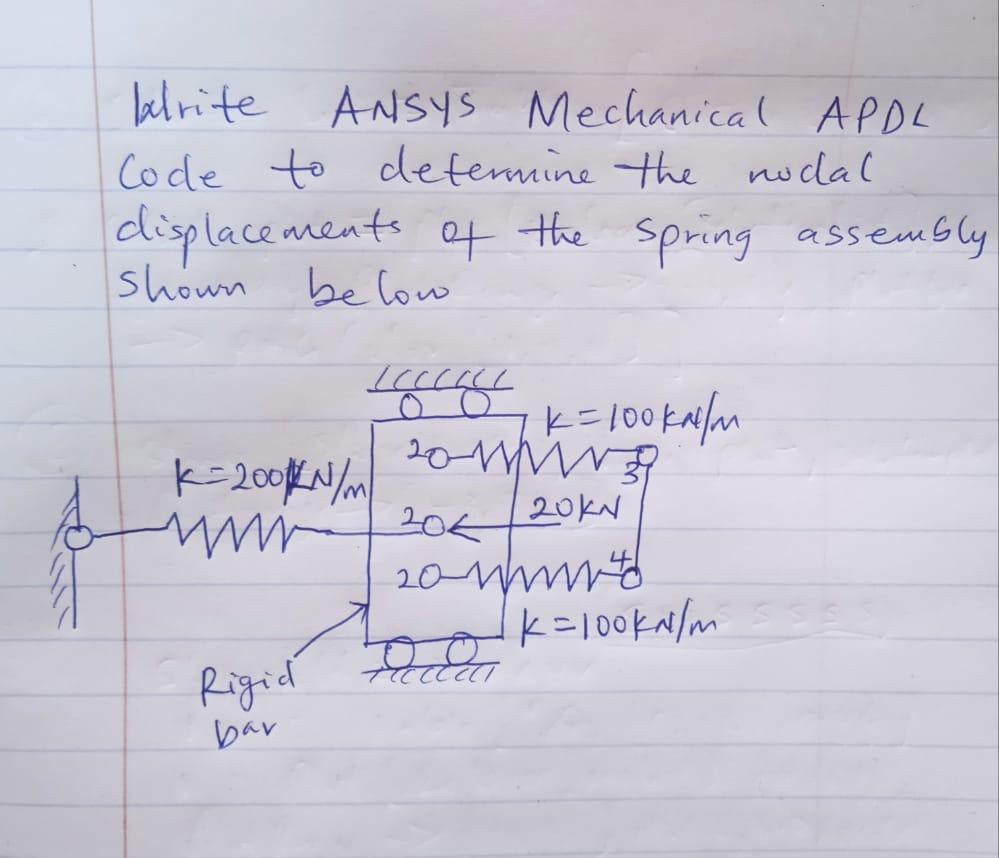 Write ANSYS Mechanical APDL
Code to determine the nodal
displacements of the spring assembly
shown below
k=100kN/m
2
3
k=200KN/m
2
20KN
2
4
k=100kN/m
Rigid
bar